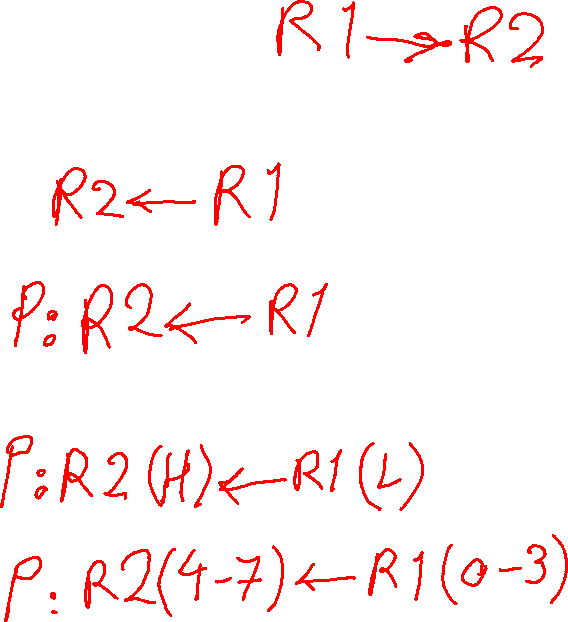 R1→R2
R2←R1
P:R2←R1
P:R2(H)←R1(L)
P:R2(4-7)←R1(0-3)